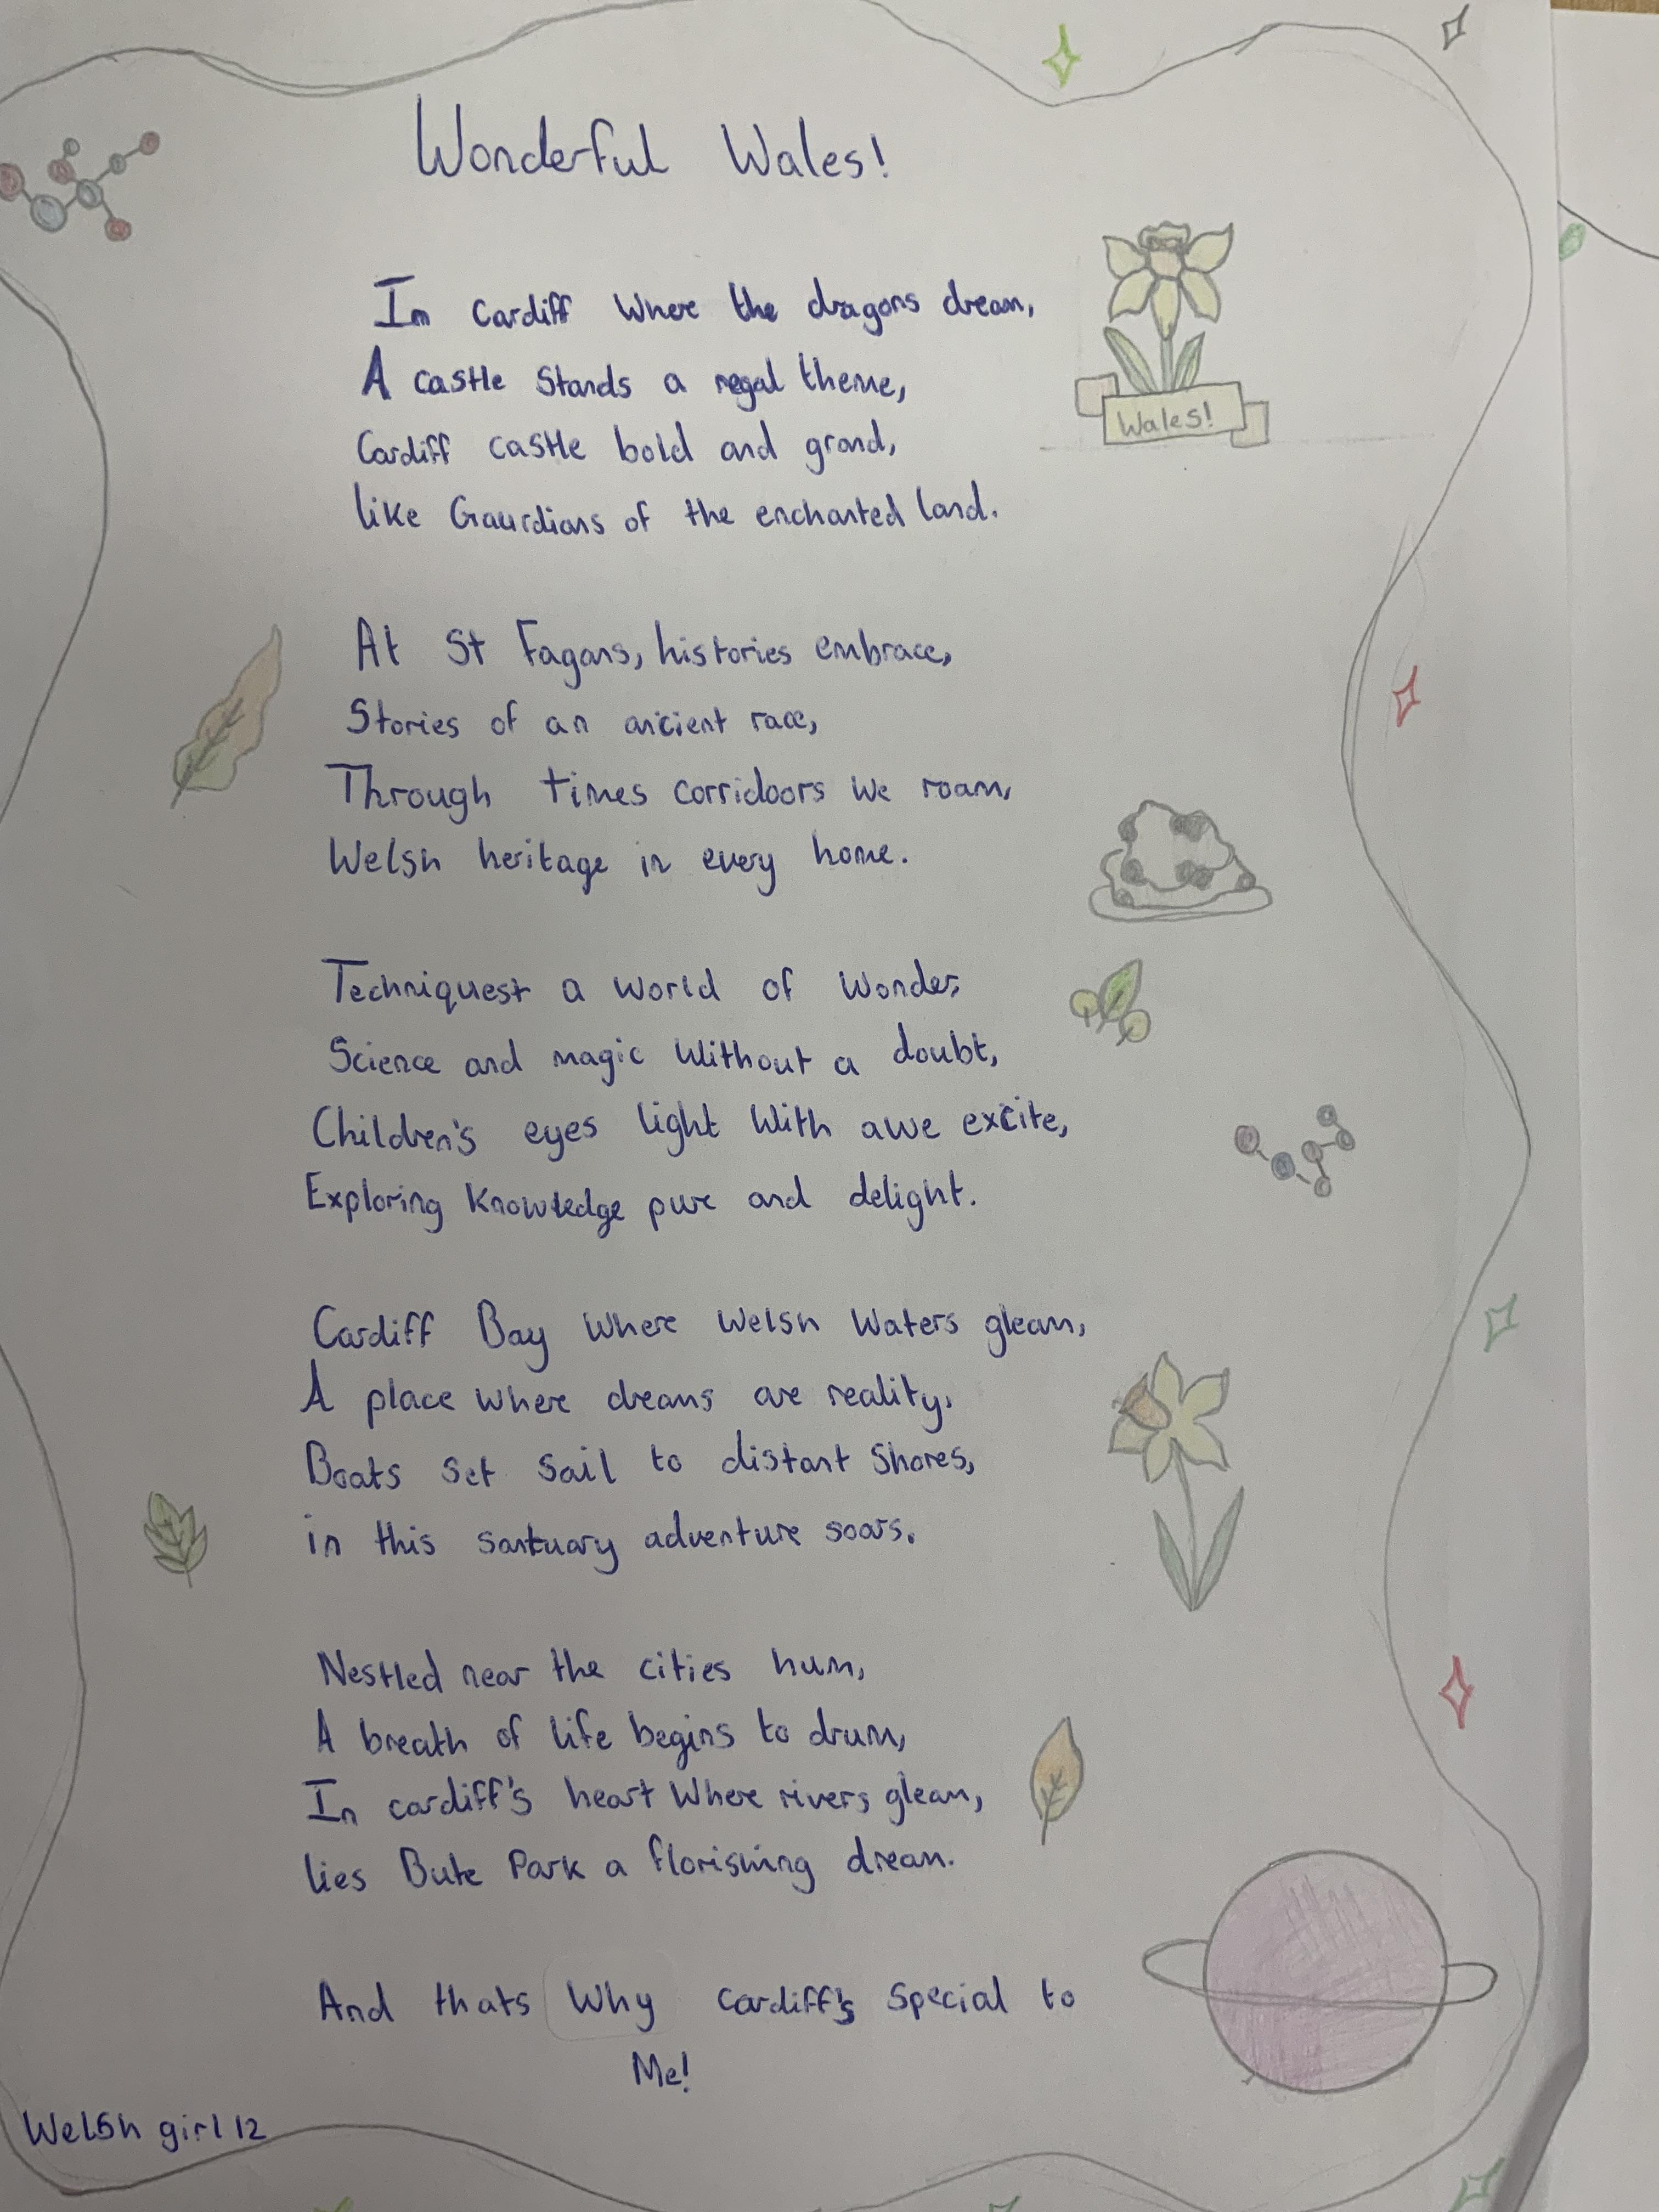 Wonderful Wales!
In Cardiff Where the dragons dream,
A castle Stands a regal theme,
Cardiff castle bold and grand,
like Gaurdians of the enchanted land.
Wales!
At St Fagans, histories embrace,
Stories of an ancient race,
Through times corridoors we roam,
Welsh heritage in every home.
Techniquest a world of wonder,
Science and magic Without a doubt,
Children's eyes light With awe excite,
Exploring Knowledge pure and delight.
Cardiff Bay Where Welsh Waters gleam,
A place where dreams are reality,
Boats set sail to distant shores,
in this santuary adventure soars.
Nestled near the cities hum,
A breath of life begins to drum,
In cardiff's heart Where rivers gleam,
lies Bute Park a florishing dream.
And thats Why Cardiff's special to
Me!
Welsh girl 12